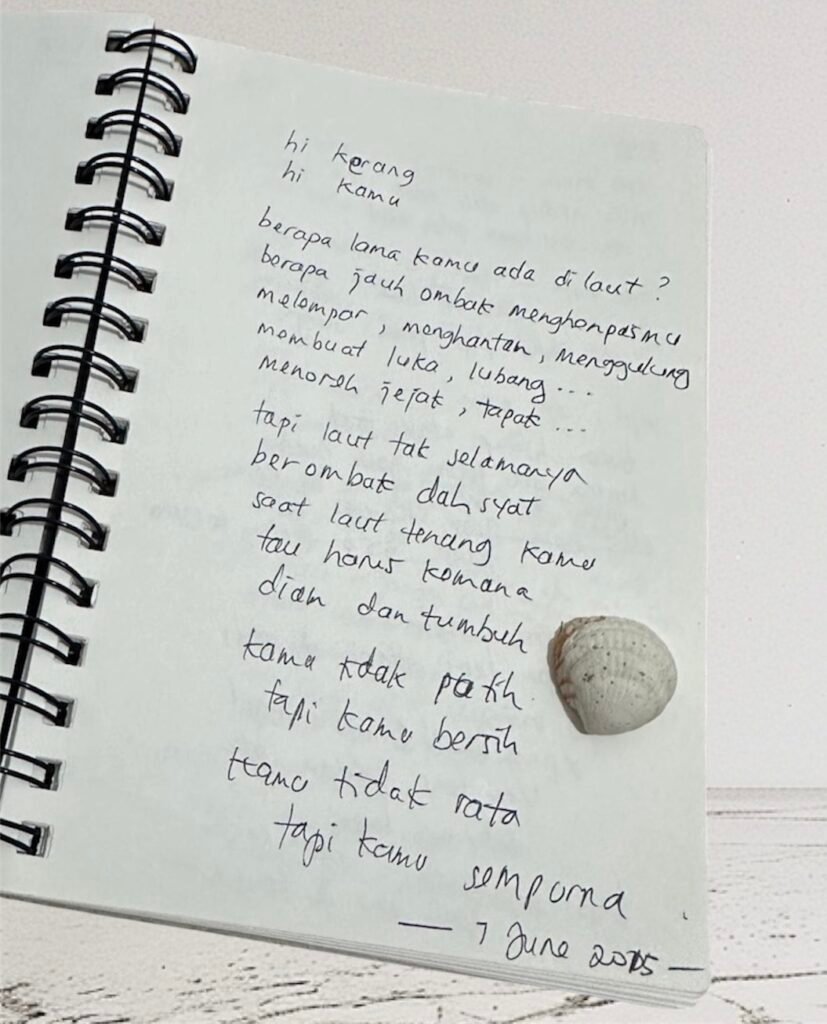 hi kerang
hi kamu
berapa lama kamu ada di laut ?
berapa jauh ombak menghempasmu
melempar, menghantam, menggulung
membuat luka, lubang ...
menoreh jejak, tapak ...
tapi laut tak selamanya
berombak dahsyat
saat laut tenang kamu
tau harus kemana
diam dan tumbuh
kamu tidak putih
tapi kamu bersih
kamu tidak rata
tapi kamu sempurna
— 7 June 2015 —